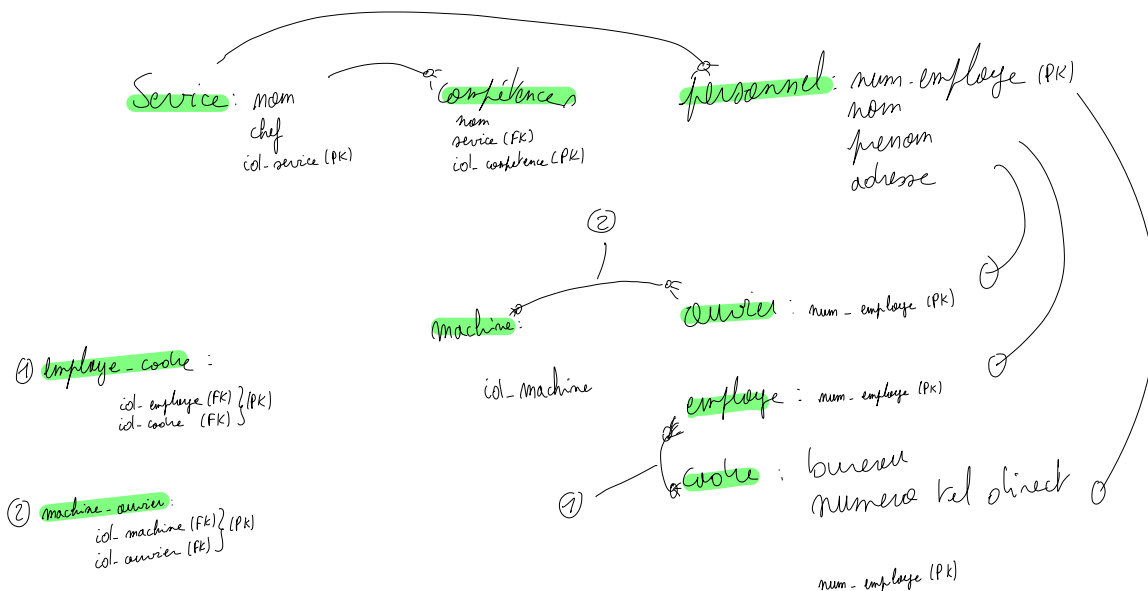 Service : nom
chef
id_service (PK)
compétences
nom
service (FK)
id_compétence (PK)
personnel : num_employe (PK)
nom
prenom
adresse
②
machine :
id_machine
ouvrier : num_employe (PK)
employe : num_employe (PK)
①
cadre : bureau
numero tel direct
num_employe (PK)
① employe_cadre :
id_employe (FK) } (PK)
id_cadre (FK)
② machine_ouvrier :
id_machine (FK) } (PK)
id_ouvrier (FK)